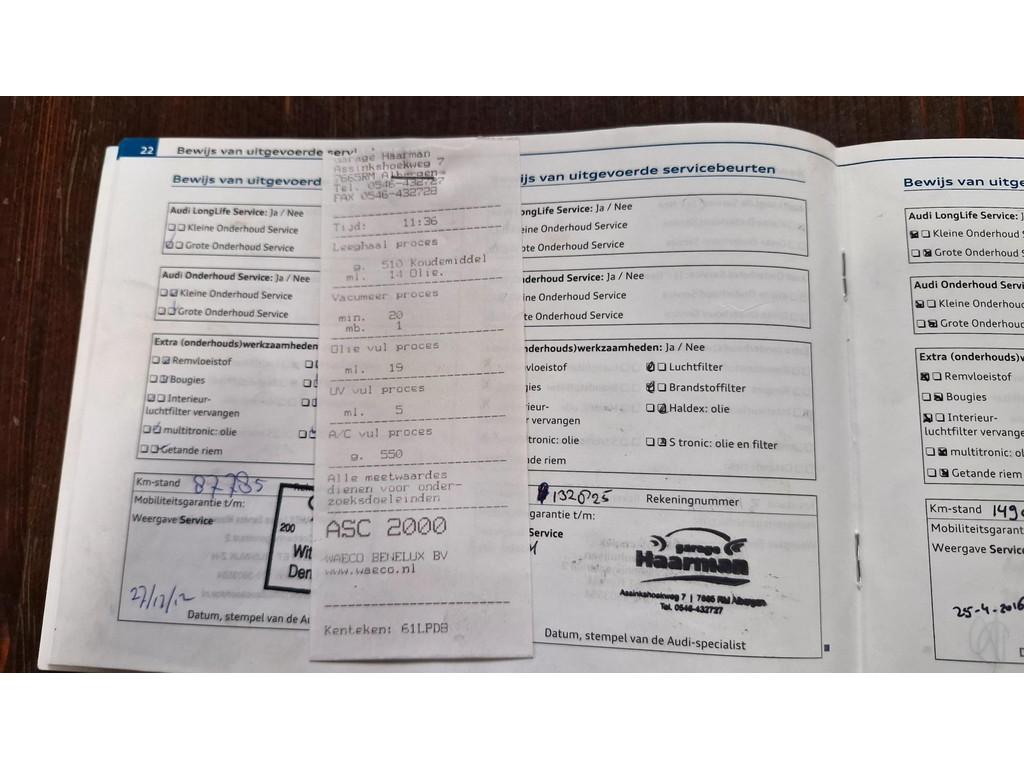 22 Bewijs van uitgevoerde
Bewijs van uitgevoerd
Audi LongLife Service: Ja / Nee
Kleine Onderhoud Service
Grote Onderhoud Service
Audi Onderhoud Service: Ja / Nee
Kleine Onderhoud Service
Grote Onderhoud Service
Extra (onderhouds)werkzaamheden
Remvloeistof
Bougies
Interieur-
luchtfilter vervangen
multitronic: olie
Getande riem
Km-stand 87785
Mobiliteitsgarantie t/m:
Weergave Service
200
Wit
Den
27/12/12
Datum, stempel van de Au
Garage Haarman
Assinkshoekweg 7
7665RM Albergen
Tel. 0546-432727
FAX 0546-432728
Tijd: 11:36
Leeghaal proces
g. 510 Koudemiddel
ml. 14 Olie.
Vacumeer proces
min. 20
mb. 1
Olie vul proces
ml. 19
UV vul proces
ml. 5
A/C vul proces
g. 550
Alle meetwaardes
dienen voor onder-
zoeksdoeleinden
ASC 2000
WAECO BENELUX BV
www.waeco.nl
Kenteken: 61LPDB
ijs van uitgevoerde servicebeurten
ongLife Service: Ja / Nee
eine Onderhoud Service
ote Onderhoud Service
nderhoud Service: Ja / Nee
eine Onderhoud Service
ote Onderhoud Service
nderhouds)werkzaamheden: Ja / Nee
vloeistof
Luchtfilter
gies
Brandstoffilter
rieur-
Haldex: olie
r vervangen
tronic: olie
S tronic: olie en filter
nde riem
Rekeningnummer
garantie t/m:
Service
garage
Haarman
Assinkshoekweg 7 | 7665 RM Albergen
Tel. 0546-432727
Datum, stempel van de Audi-specialist
Bewijs van uitge
Audi LongLife Service: J
Kleine Onderhoud S
Grote Onderhoud
Audi Onderhoud Servic
Kleine Onderhoud
Grote Onderhoud
Extra (onderhouds)we
Remvloeistof
Bougies
Interieur-
luchtfilter vervange
multitronic: oli
Getande riem
Km-stand 149
Mobiliteitsgarant
Weergave Servic
25-4-2016